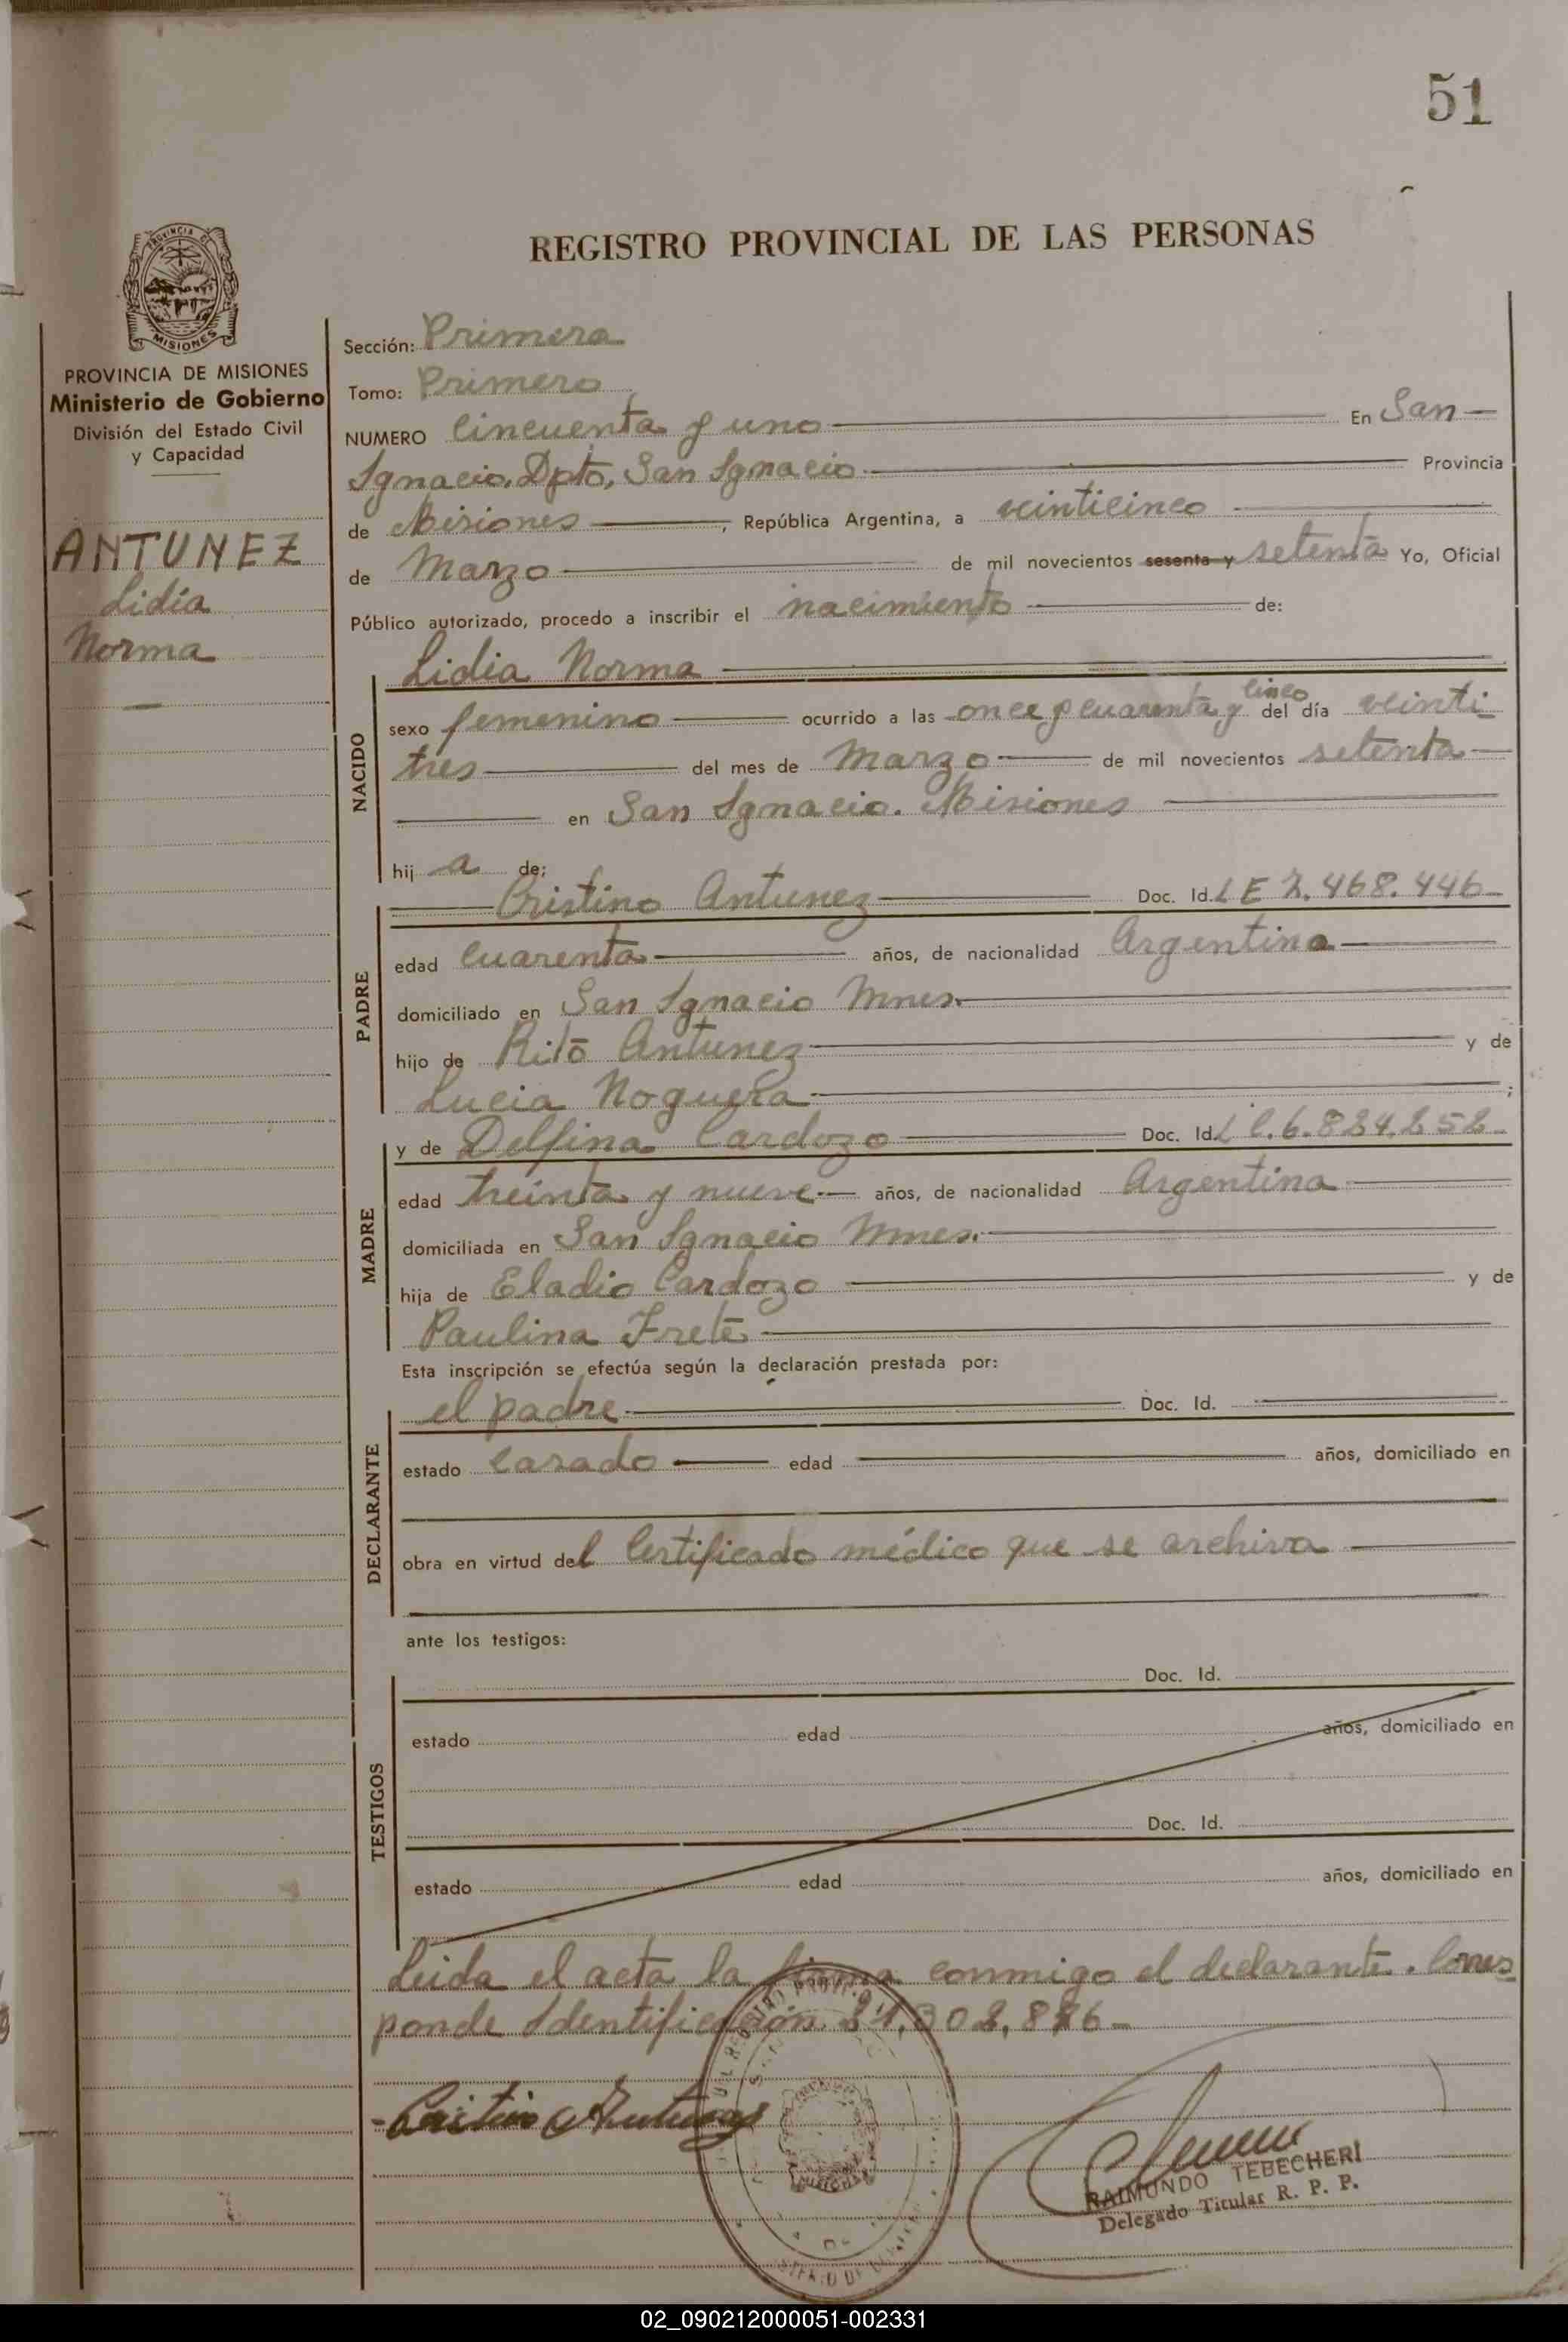 51
REGISTRO PROVINCIAL DE LAS PERSONAS
MISIONES
PROVINCIA DE MISIONES
Ministerio de Gobierno
División del Estado Civil
y Capacidad
ANTUNEZ
Lidia
Norma
Sección: Primera
Tomo: Primero
NUMERO Cincuenta y uno En San
Ignacio. Dpto, San Ignacio Provincia
de Misiones, República Argentina, a veinticinco
de Marzo de mil novecientos sesenta y setenta Yo, Oficial
Público autorizado, procedo a inscribir el nacimiento de:
Lidia Norma
NACIDO
sexo femenino ocurrido a las once y cuarenta y cinco del día veinti
tres del mes de Marzo de mil novecientos setenta
en San Ignacio. Misiones
hij a de:
Cristino Antunez Doc. Id. LE 7.468.446
PADRE
edad cuarenta años, de nacionalidad Argentina
domiciliado en San Ignacio Mnes.
hijo de Rito Antunez y de
Lucia Noguera ;
y de Delfina Cardozo Doc. Id. LC.6.824.252
MADRE
edad treinta y nueve años, de nacionalidad Argentina
domiciliada en San Ignacio Mnes.
hija de Eladio Cardozo y de
Paulina Frete
Esta inscripción se efectúa según la declaración prestada por:
el padre Doc. Id.
DECLARANTE
estado casado edad años, domiciliado en
obra en virtud del Certificado médico que se archiva
ante los testigos:
Doc. Id.
TESTIGOS
estado edad años, domiciliado en
Doc. Id.
estado edad años, domiciliado en
Leida el acta la firma conmigo el declarante. Corres
ponde Identificación
Cristino Antunez
RAIMUNDO TEBECHERI
Delegado Titular R. P. P.
02_090212000051-002331